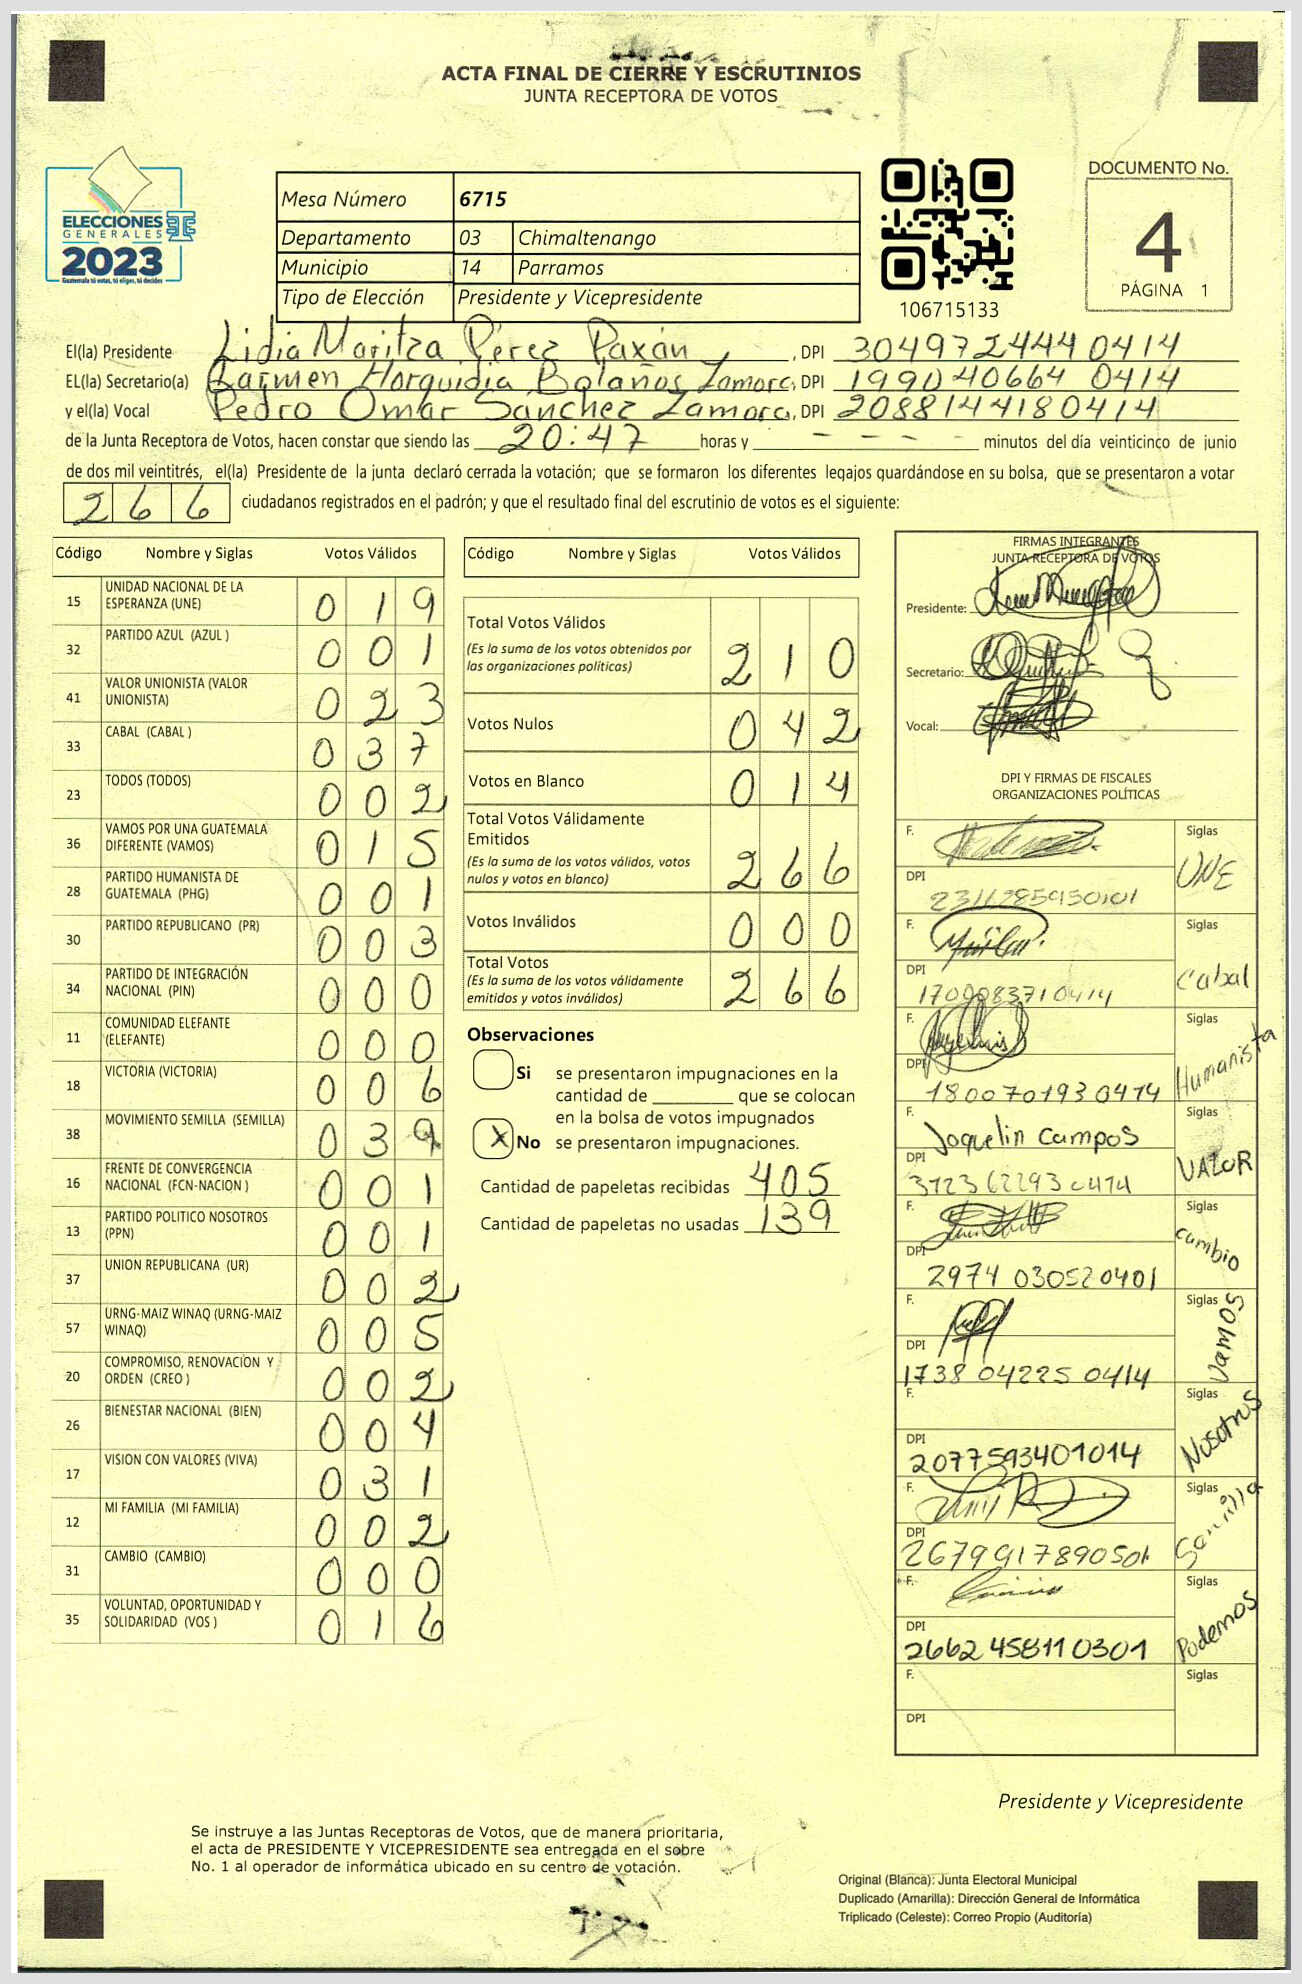 ACTA FINAL DE CIERRE Y ESCRUTINIOS
JUNTA RECEPTORA DE VOTOS
ELECCIONES
GENERALES
2023
Guatemala tú votas, tú eliges, tú decides
Mesa Número 6715
Departamento 03 Chimaltenango
Municipio 14 Parramos
Tipo de Elección Presidente y Vicepresidente
106715133
DOCUMENTO No.
4
PÁGINA 1
El(la) Presidente Lidia Maritza Pérez Paxán, DPI 3049724440414
EL(la) Secretario(a) Carmen Horquidia Bolaños Zamora, DPI 199040664 0414
y el(la) Vocal Pedro Omar Sánchez Zamora, DPI 2088144180414
de la Junta Receptora de Votos, hacen constar que siendo las 20:47 horas y - - - - minutos del día veinticinco de junio
de dos mil veintitrés, el(la) Presidente de la junta declaró cerrada la votación; que se formaron los diferentes legajos guardándose en su bolsa, que se presentaron a votar
266 ciudadanos registrados en el padrón; y que el resultado final del escrutinio de votos es el siguiente:
Código Nombre y Siglas Votos Válidos
15 UNIDAD NACIONAL DE LA ESPERANZA (UNE) 019
32 PARTIDO AZUL (AZUL ) 001
41 VALOR UNIONISTA (VALOR UNIONISTA) 023
33 CABAL (CABAL ) 037
23 TODOS (TODOS) 002
36 VAMOS POR UNA GUATEMALA DIFERENTE (VAMOS) 015
28 PARTIDO HUMANISTA DE GUATEMALA (PHG) 001
30 PARTIDO REPUBLICANO (PR) 003
34 PARTIDO DE INTEGRACIÓN NACIONAL (PIN) 000
11 COMUNIDAD ELEFANTE (ELEFANTE) 000
18 VICTORIA (VICTORIA) 006
38 MOVIMIENTO SEMILLA (SEMILLA) 039
16 FRENTE DE CONVERGENCIA NACIONAL (FCN-NACION ) 001
13 PARTIDO POLITICO NOSOTROS (PPN) 001
37 UNION REPUBLICANA (UR) 002
57 URNG-MAIZ WINAQ (URNG-MAIZ WINAQ) 005
20 COMPROMISO, RENOVACION Y ORDEN (CREO ) 002
26 BIENESTAR NACIONAL (BIEN) 004
17 VISION CON VALORES (VIVA) 031
12 MI FAMILIA (MI FAMILIA) 002
31 CAMBIO (CAMBIO) 000
35 VOLUNTAD, OPORTUNIDAD Y SOLIDARIDAD (VOS ) 016
Código Nombre y Siglas Votos Válidos
Total Votos Válidos 210
(Es la suma de los votos obtenidos por
las organizaciones políticas)
Votos Nulos 042
Votos en Blanco 014
Total Votos Válidamente
Emitidos 266
(Es la suma de los votos válidos, votos
nulos y votos en blanco)
Votos Inválidos 000
Total Votos 266
(Es la suma de los votos válidamente
emitidos y votos inválidos)
Observaciones
Si se presentaron impugnaciones en la
cantidad de ________ que se colocan
en la bolsa de votos impugnados
X No se presentaron impugnaciones.
Cantidad de papeletas recibidas 405
Cantidad de papeletas no usadas 139
FIRMAS INTEGRANTES
JUNTA RECEPTORA DE VOTOS
Presidente:
Secretario:
Vocal:
DPI Y FIRMAS DE FISCALES
ORGANIZACIONES POLÍTICAS
F. Siglas UNE
DPI
F. Siglas Cabal
DPI 1700083710414
F. Siglas Humanista
DPI 1800701930414
F. Joquelin Campos Siglas VALOR
DPI 3123622930414
F. Siglas cambio
DPI 2974 030520401
F. Siglas Vamos
DPI 1738 04225 0414
F. Siglas Nosotros
DPI 2077593401014
F. Siglas Semilla
DPI 2679917890501
F. Siglas Podemos
DPI 2662458110301
F. Siglas
DPI
Presidente y Vicepresidente
Se instruye a las Juntas Receptoras de Votos, que de manera prioritaria,
el acta de PRESIDENTE Y VICEPRESIDENTE sea entregada en el sobre
No. 1 al operador de informática ubicado en su centro de votación.
Original (Blanca): Junta Electoral Municipal
Duplicado (Amarilla): Dirección General de Informática
Triplicado (Celeste): Correo Propio (Auditoría)